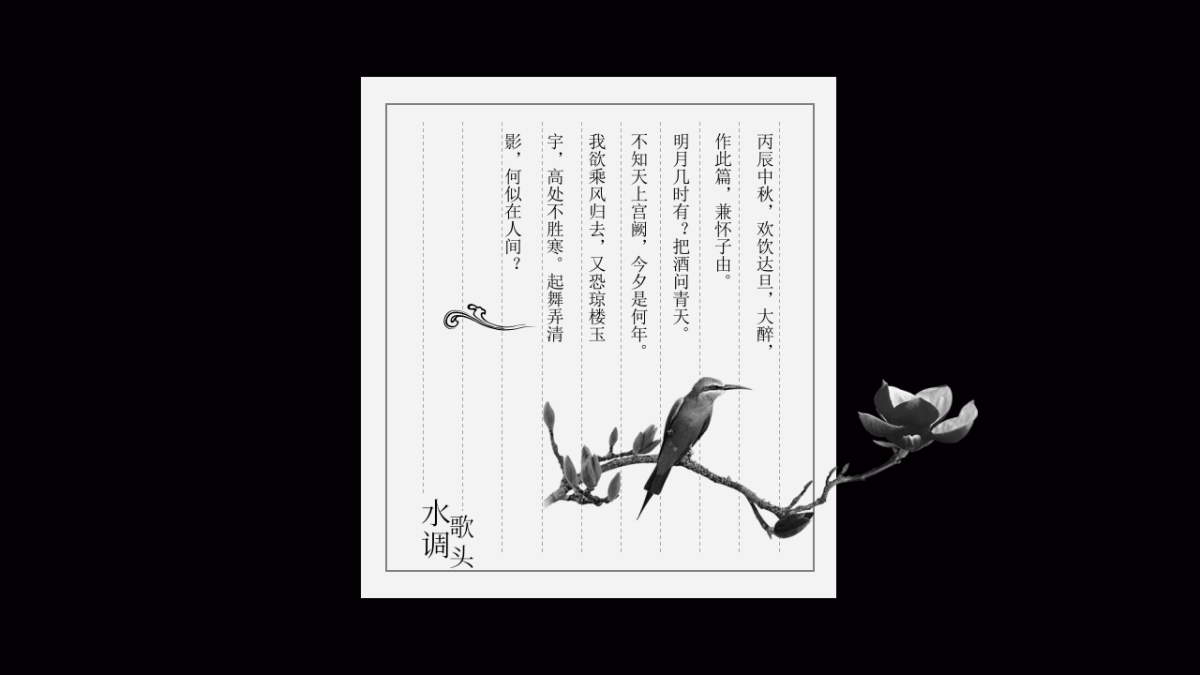 丙辰中秋，欢饮达旦，大醉，
作此篇，兼怀子由。
明月几时有？把酒问青天。
不知天上宫阙，今夕是何年。
我欲乘风归去，又恐琼楼玉
宇，高处不胜寒。起舞弄清
影，何似在人间？
水调
歌头